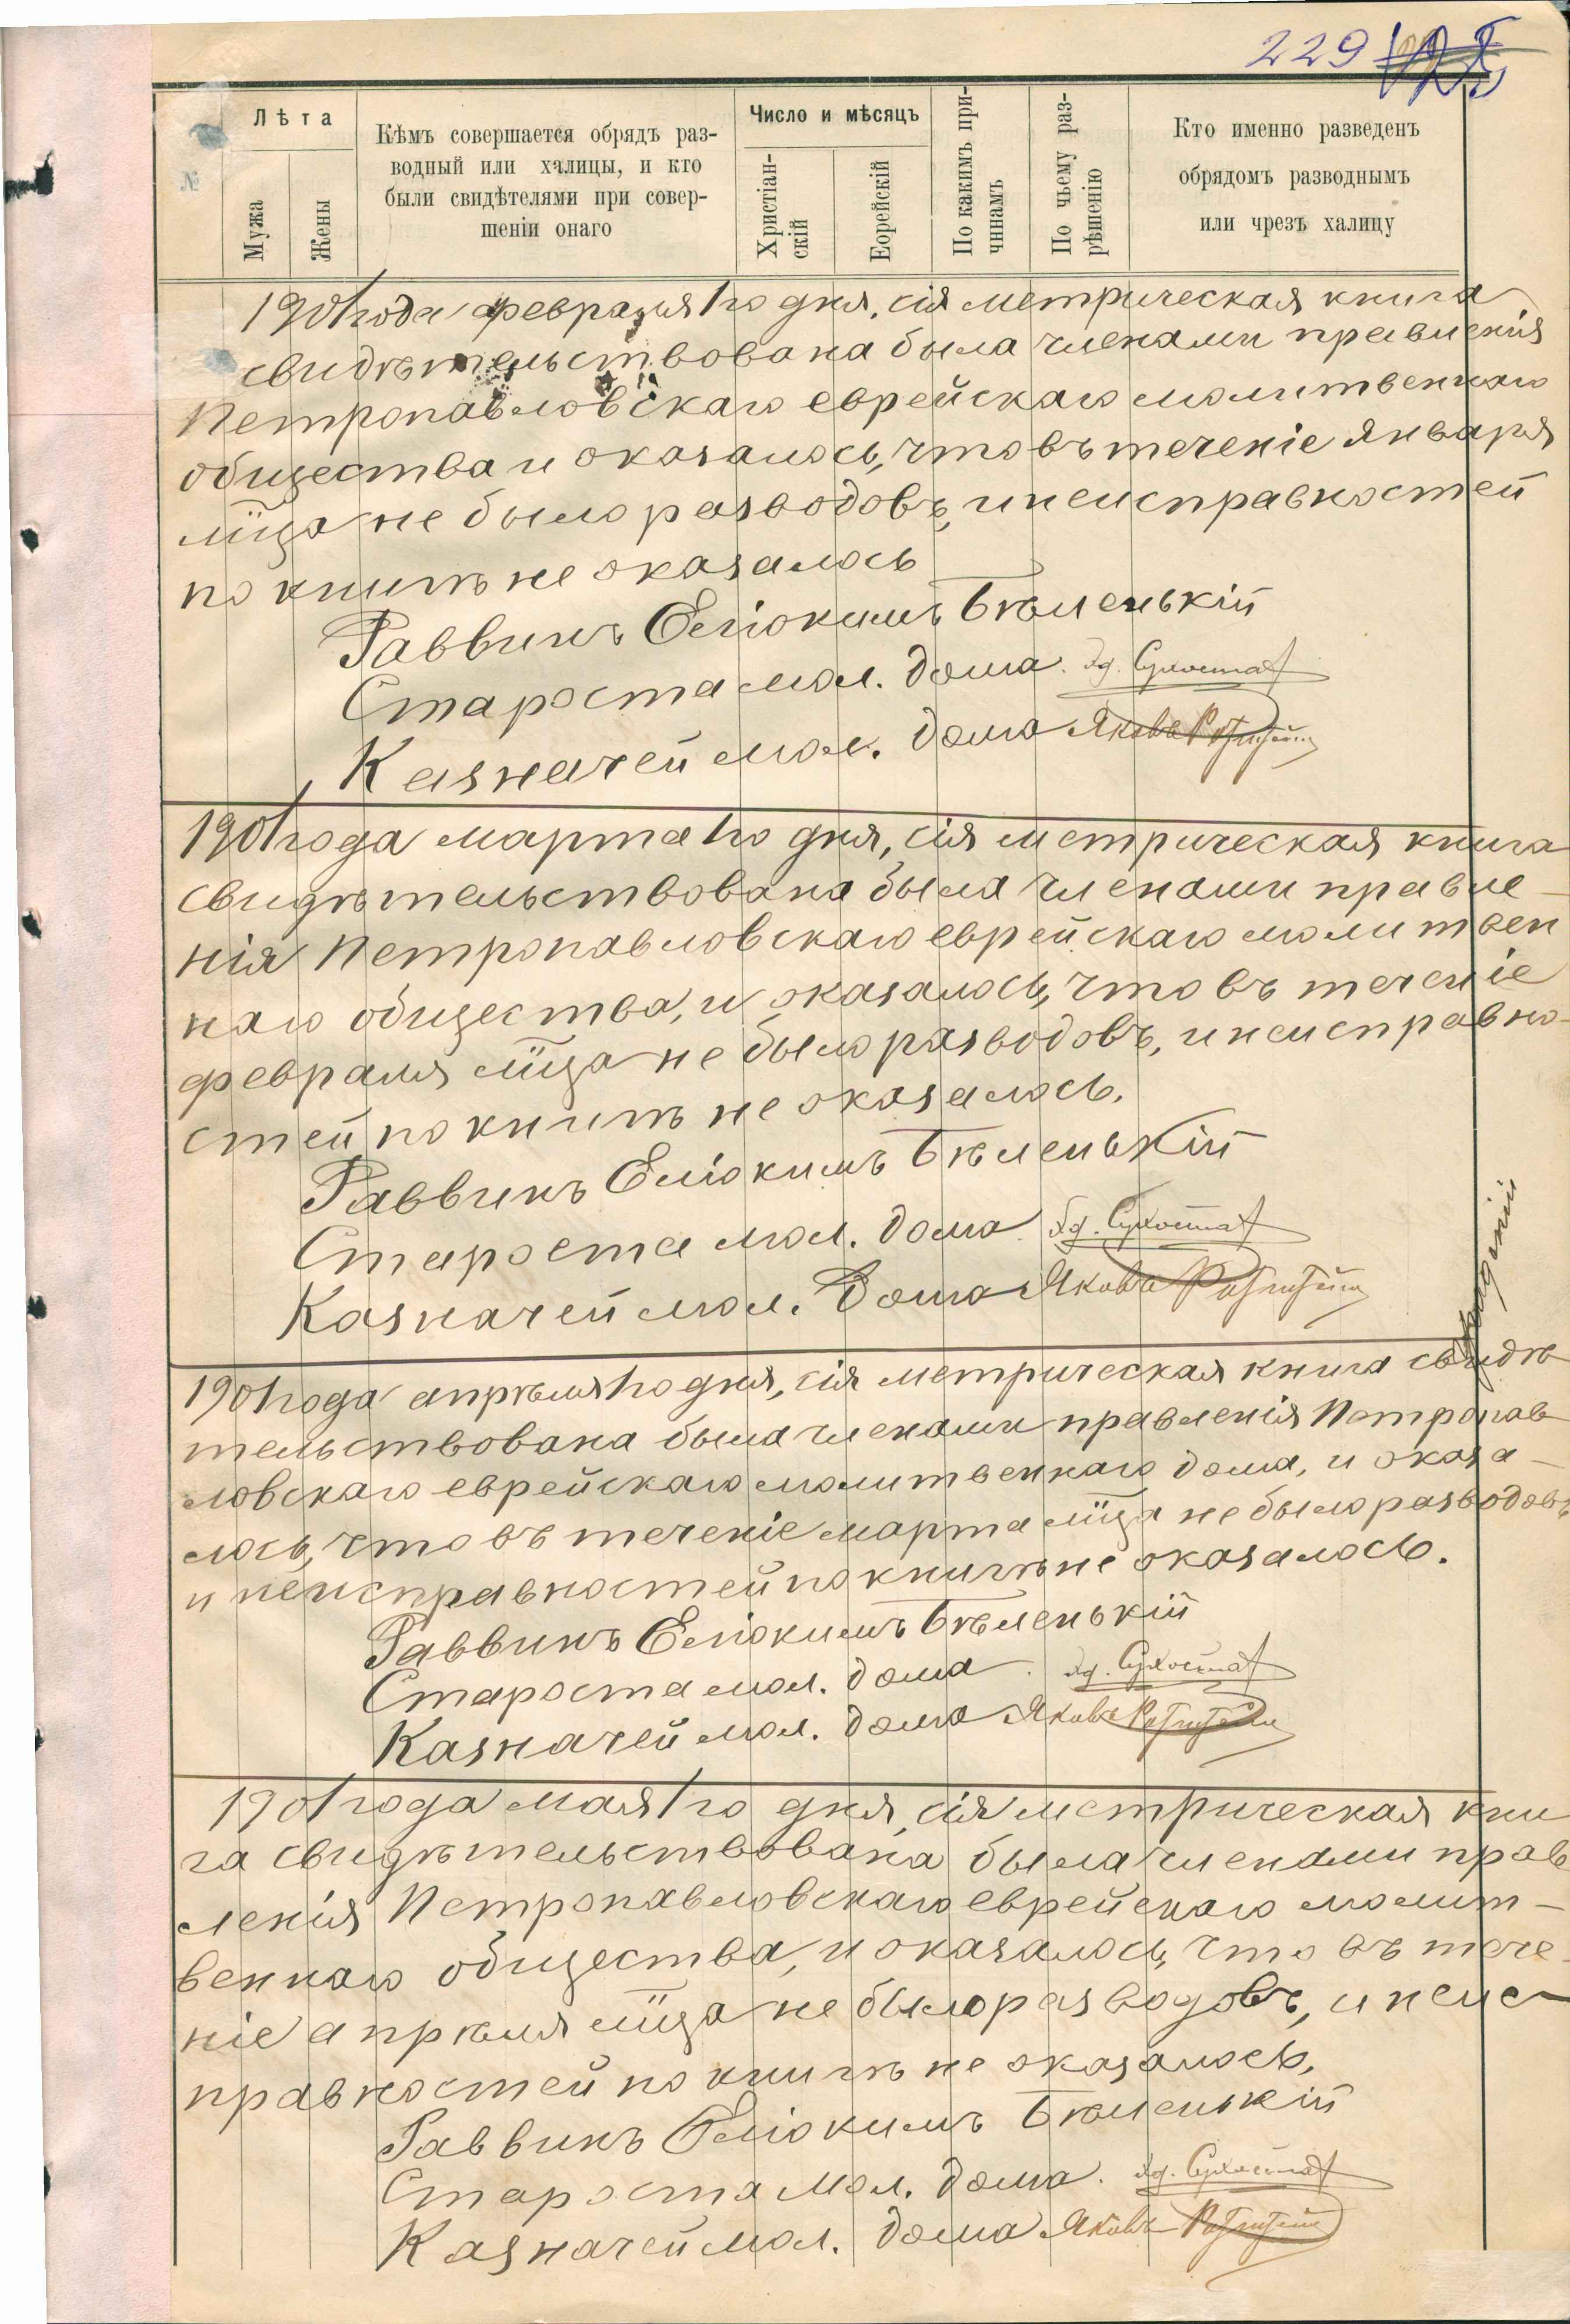 229
№
Лѣта
Мужа
Жены
Кѣмъ совершается обрядъ раз-
водный или халицы, и кто
были свидѣтелями при совер-
шеніи онаго
Число и мѣсяцъ
Христіан-
скій
Еврейскій
По какимъ при-
чинамъ
По чьему раз-
рѣшенію
Кто именно разведенъ
обрядомъ разводнымъ
или чрезъ халицу
1901 года февраля 1го дня, сія метрическая книга
свидѣтельствована была членами правленія
Петропавловскаго еврейскаго молитвеннаго
общества и оказалось, что въ теченіе января
мца не было разводовъ, и неисправностей
по книгѣ не оказалось
Раввинъ Еліокимъ Бѣленькій
Староста мол. дома
Казначей мол. дома Яковъ
1901 года марта 1го дня, сія метрическая книга
свидѣтельствована была членами правле-
нія Петропавловскаго еврейскаго молитвен
наго общества, и оказалось, что въ теченіе
февраля мца не было разводовъ, и неисправно-
стей по книгѣ не оказалось.
Раввинъ Еліокимъ Бѣленькій
Староста мол. дома
Казначей мол. дома Яковъ
1901 года апрѣля 1го дня, сія метрическая книга свидѣ
тельствована была членами правленія Петропав
ловскаго еврейскаго молитвеннаго дома, и оказа-
лось, что въ теченіе марта мца не было разводовъ
и неисправностей по книгѣ не оказалось.
Раввинъ Еліокимъ Бѣленькій
Староста мол. дома
Казначей мол. дома Яковъ
1901 года мая 1го дня, сія метрическая кни
га свидѣтельствована была членами прав
ленія Петропавловскаго еврейскаго молит-
веннаго общества, и оказалось, что въ тече
ніе апрѣля мца не было разводовъ, и неис-
правностей по книгѣ не оказалось.
Раввинъ Еліокимъ Бѣленькій
Староста мол. дома
Казначей мол. дома Яковъ